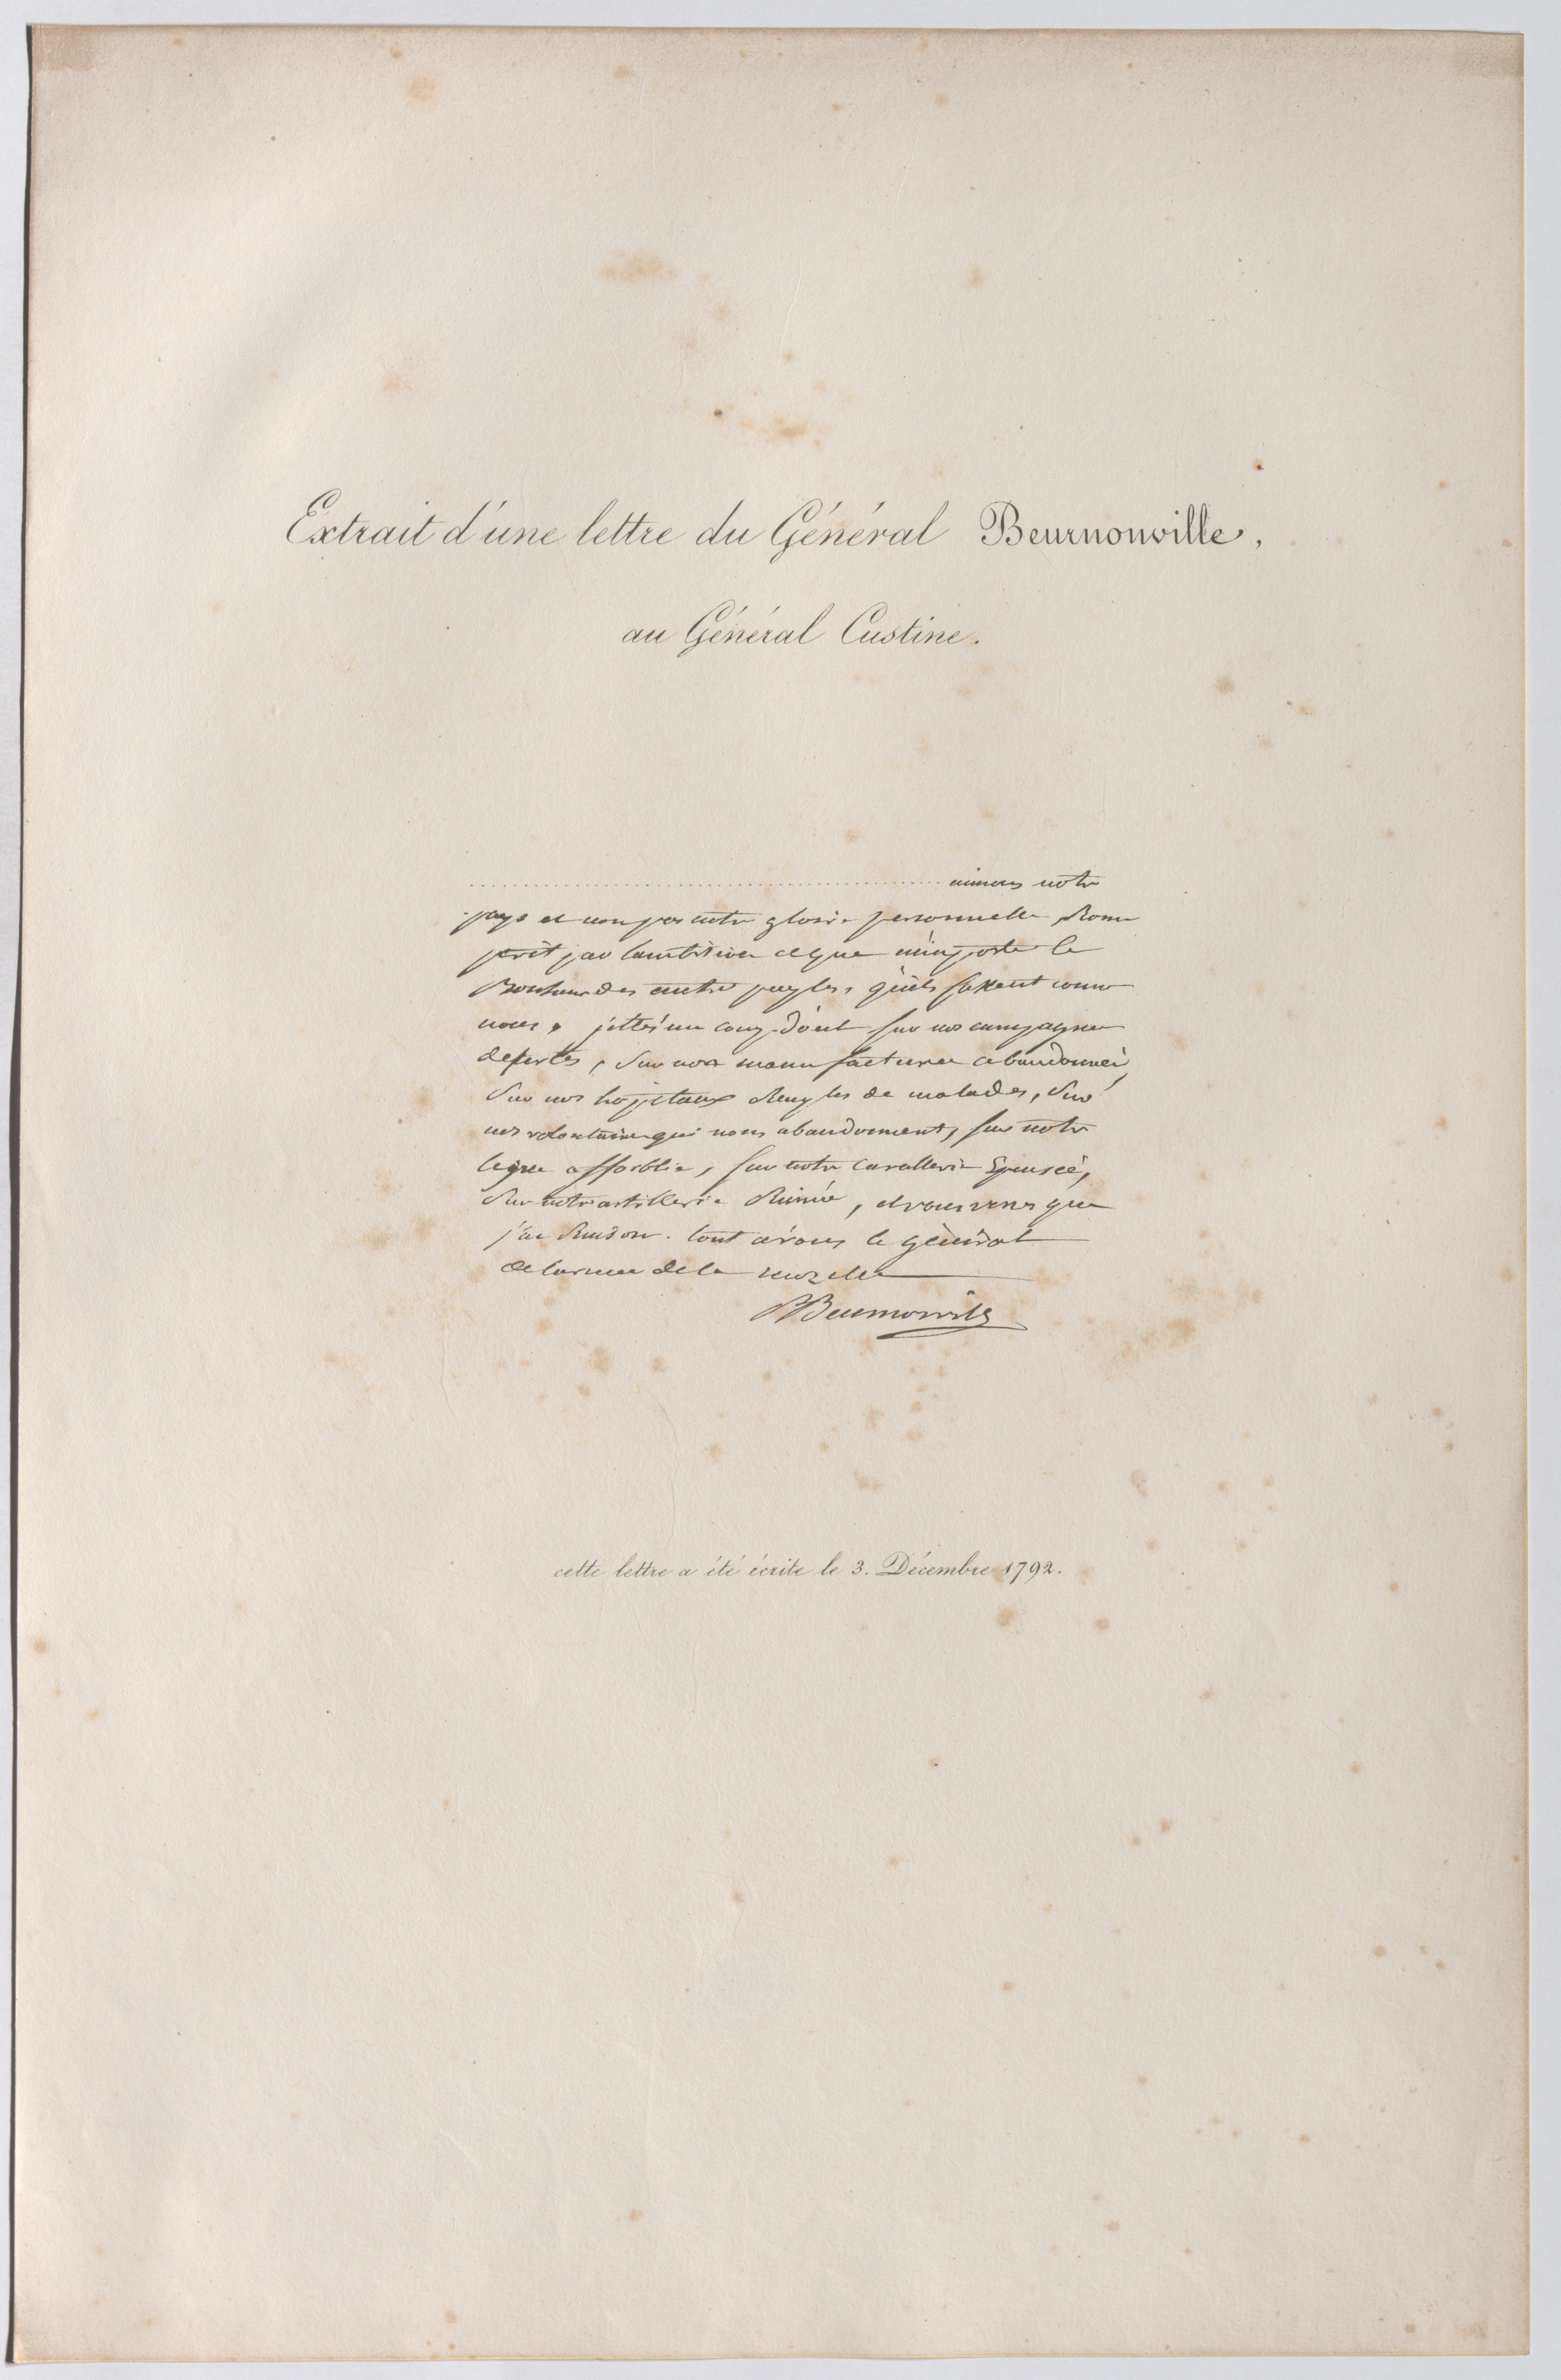 Extrait d'une lettre du Général Beurnonville,
au Général Custine.
aimons notre
pays et non pas notre gloire personnelle, Rome
périt par l'ambition et que m'importe le
Bonheur des autres peuples, qu'ils fassent comme
nous, jettés un coup-d'oeil sur nos campagnes
desertes, Sur nos manufactures abandonneés,
Sur nos hopitaux Remplis de malades, Sur
nos volontaires qui nous abandonnent, sur notre
ligne affoiblie, sur notre cavallerie Epuiseé,
Sur notre artillerie Ruinée, et vous verres que
j'ai Raison. tout a vous le général
de larmee de la mozelle
Beurnonville
cette lettre a été écrite le 3. Décembre 1792.